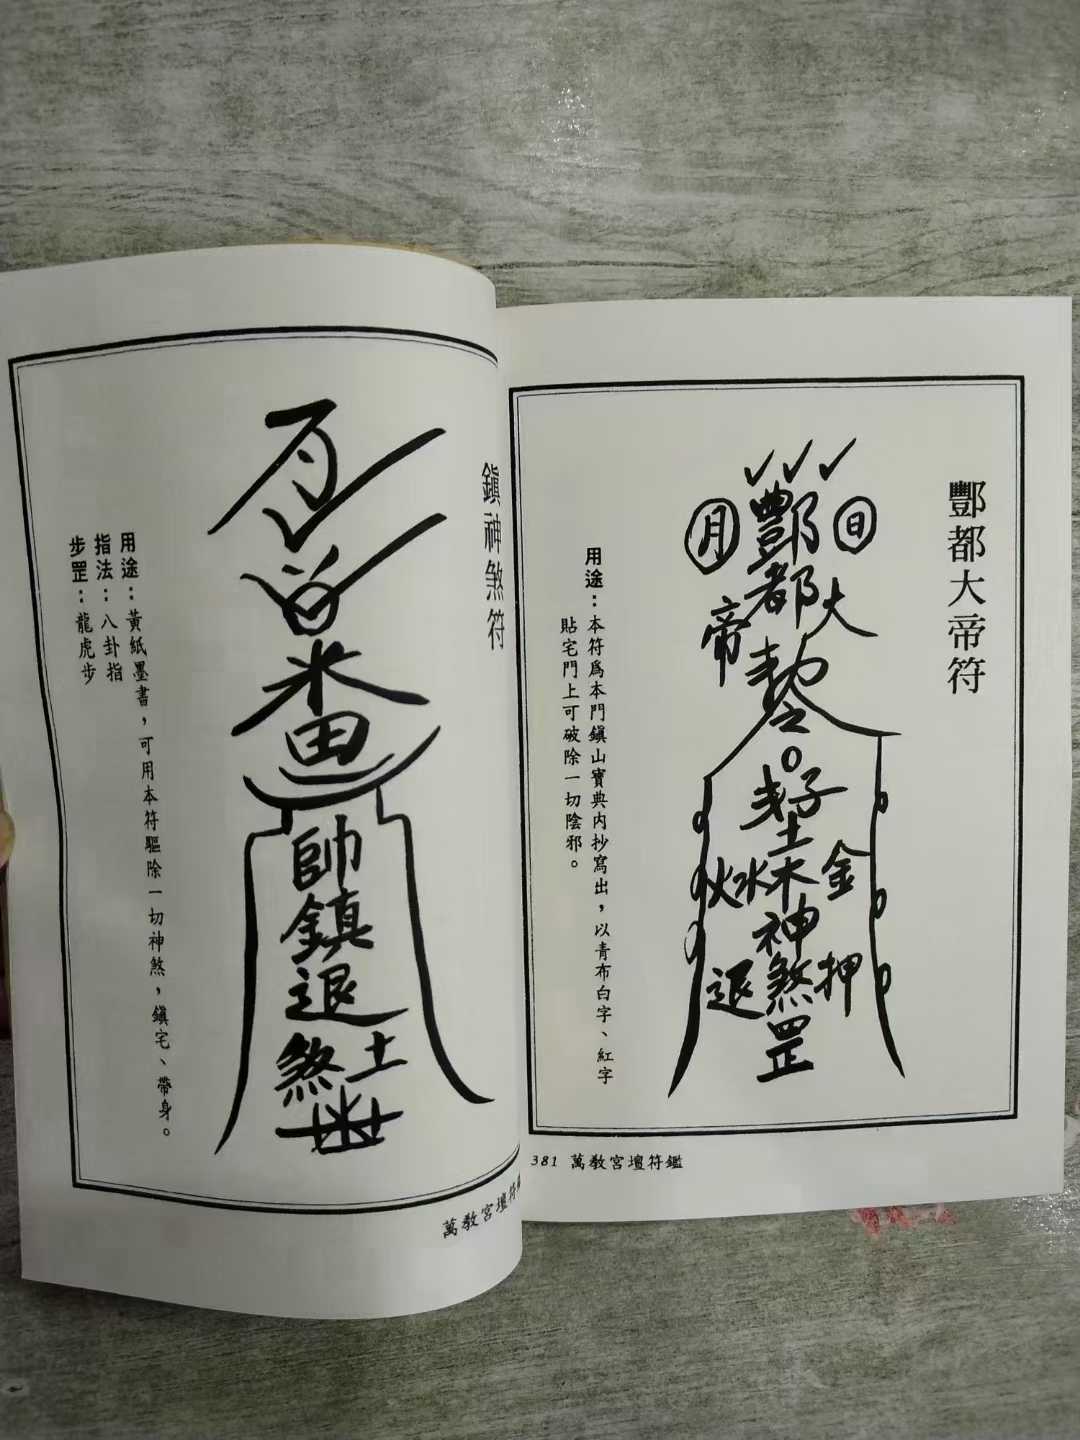 鎮神煞符
帥
鎮
退
煞 土
用途：黃紙墨書，可用本符驅除一切神煞，鎮宅、帶身。
指法：八卦指
步罡：龍虎步
萬教宮壇符
酆都大帝符
日
月
酆
都
大
帝
子
土
火水木金
神
退煞押
罡
用途：本符爲本門鎮山寶典內抄寫出，以青布白字、紅字
貼宅門上可破除一切陰邪。
381 萬教宮壇符鑑